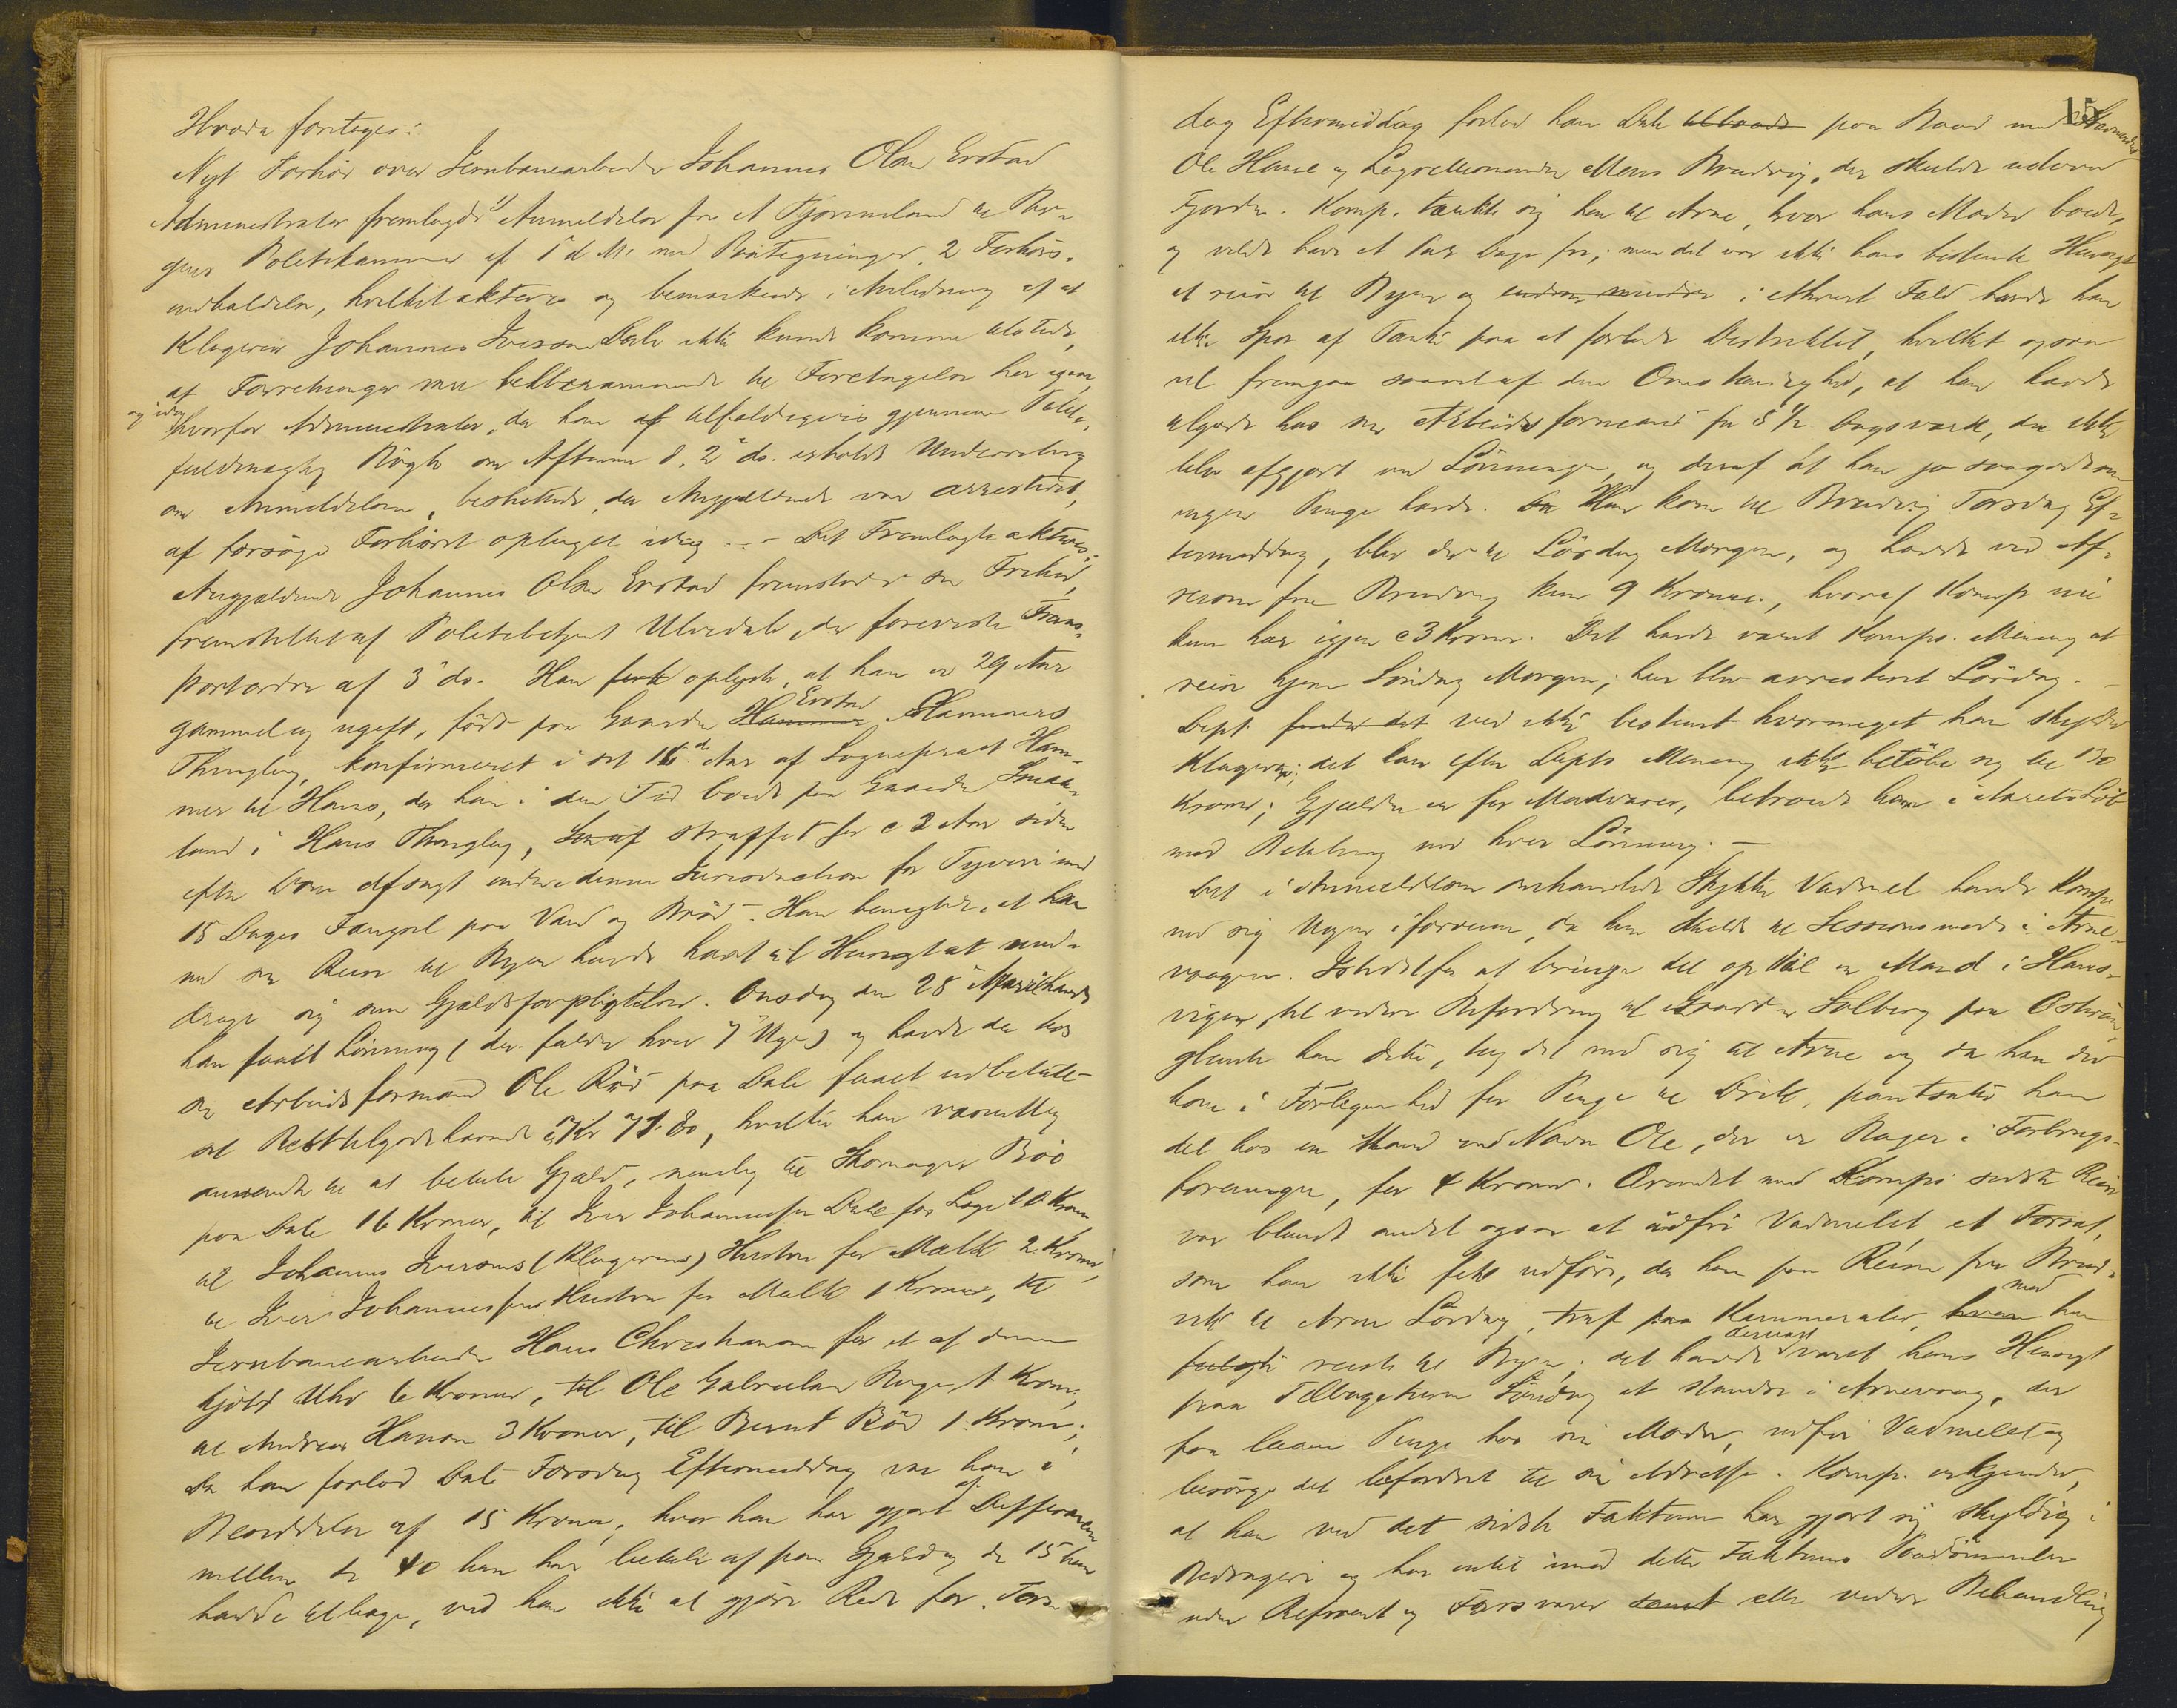 Hvorda foretoges:
Nyt Forhør over Jernbanearbeider Johannes Olsen Evstad
Administrator fremlagde 1) Anmeldelse fra A Tjørneland til Ber-
gens Politikammer af 1ste d. M. med Paategninger, 2 Forhørs-
indkaldelse, hvilket akteres og bemærkede i Anledning af at
Klageren Johannes Iversen Dale ikke kunde komme tilstede,
at Forretninger var berammede til Foretagelse her igaar
og idag
hvorfor Administrator, da han af tilfældigvis gjennem Politi-
fuldmægtig Bøgh om Aftenen d. 2 ds. erholdt Underretning
om Anmeldelsen, besluttede, da Angjældende var arresteret,
at forsøge Forhøret optaget idag. - Det Fremlagte akteres:
Angjældende Johannes Olsen Evstad fremstod i sin Frihed,
fremstillet af Politibetjent Ulvedal, der foreviste Trans-
portordre af 3 ds. Han fork oplyste, at han er 29 Aar
gammel og ugift, født paa Gaarden Hammer Evstad i Hammers
Thinglag, konfirmeret i sit 16de Aar af Sognepræst Ham-
mer til Haus, da han i den Tid boede paa Gaarden Smaa-
land i Haus Thinglag, straffet for c 2 Aar siden
efter Dom afsagt under denne Jurisdiktion for Tyveri med
15 Dages Fængsel paa Vand og Brød. Han benegter, at han
ved sin Reise til Byen havde havt til Hensigt at und-
drage sig sine Gjældsforpligtelser. Onsdag den 28 April havde
han faaet Lønning (den falder hver 7 Uge) og havde da hos
sin Arbeidsformand Ole Röd paa Dale faaet udbetalt
sit Resttilgodehavende Kr 71.80, hvilke han væsentlig
anvendte til at betale Gjæld, nemlig til Skomager Böö
paa Dale 16 Kroner, til Iver Johannessen Dale for Logi 10 Kroner,
til Johannes Iversens (Klagerens) Hustru for Melk 2 Kroner,
til Iver Johannessens Hustru for Melk 1 Krone, til
Jernbanearbeider Hans Christiansen for et af denne
kjøbt Uhr 6 Kroner, til Ole Gabrielsen Bage 1 Krone,
til Andreas Hansen 3 Kroner, til Bernt Röd 1 Krone;
Da han forlod Dale Torsdag Eftermiddag var han i
Besiddelse af 15 Kroner; hvor han har gjort af Differencen
mellem de 40 han har betalt af paa Gjæld og de 15 han
havde tilbage, ved han ikke at gjøre Rede for. Tors-
15
dag Eftermiddag forlod han Dale tilbaads paa Baad med
Ole Hause og Mons Brudvig, der skulde udover
Fjorden. Komp. tænkte sig hen til Arne, hvor hans Moder boede,
og vilde have et Par Dage fri; men det var ikke hans bestemte Hensigt
at reise til Byen og endnu mindre i ethvert Fald havde han
ikke Spor af Tanke paa at forlade Distriktet, hvilket ogsaa
vil fremgaa saavel af den Omstændighed, at han havde
tilgode hos sin Arbeidsformand for 8 1/2 Dagsværk, der ikke
blev afgjort ved Lønningen, og deraf at han jo saagodtsom
ingen Penge havde. Da Han kom til Brudvig Torsdag Ef-
termiddag, blev der til Lørdag Morgen, og havde ved Af-
reisen fra Brudvig kun 9 Kroner, hvoraf Komp nu
kun har igjen c 3 Kroner. Det havde været Komps. Mening at
reise hjem Søndag Morgen; han blev arresteret Lørdag. -
Dept. ved ikke bestemt hvormeget han skylder
Klageren; det kan efter Depts Mening ikke beløbe sig til 130
Kroner; Gjælden er for Madvarer, betroede ham i Aarets Løb
mod Betaling ved hver Lønning. -
Det i Anmeldelsen omhandlede Stykke Vadmel havde Komp.
med sig Ugen iforveien, da han skulde til Sessionsmøde i Arne-
vaagen. Istedetfor at bringe det op til en Mand i Haus-
vigen, til videre Befordring til Solberg paa Osterøen,
glemte han dette, tog det med sig til Arne og da han der
kom i Forlegenhed for Penge til Drik, pantsatte han
det hos en Mand ved Navn Ole, der er Bager i Forbrugs-
foreningen, for 4 Kroner. Ærendet med Komps. sidste Reise
var blandt andet ogsaa at udfri Vadmelet, et Forsæt,
som han ikke fik udført, da han paa Reisen fra Brud-
vik til Arne Lørdag, traf paa Kammerater, hvem med han
fulgte reiste til Byen; det havde dernæst været hans Hensigt
paa Tilbageturen Søndag at standse i Arnevaag, der
faa laane Penge hos sin Moder, udfri Vadmelet og
besørge det befordret til sin Adresse. Komp. erkjender,
at han ved det sidste Faktum har gjort sig skyldig i
Bedrageri og har intet imod dette Faktums Paadømmelse
uden Aktorat og Forsvarer samt eller videre Behandling